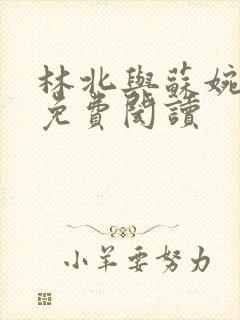 林北與蘇婉
免費閱讀
小羊要努力